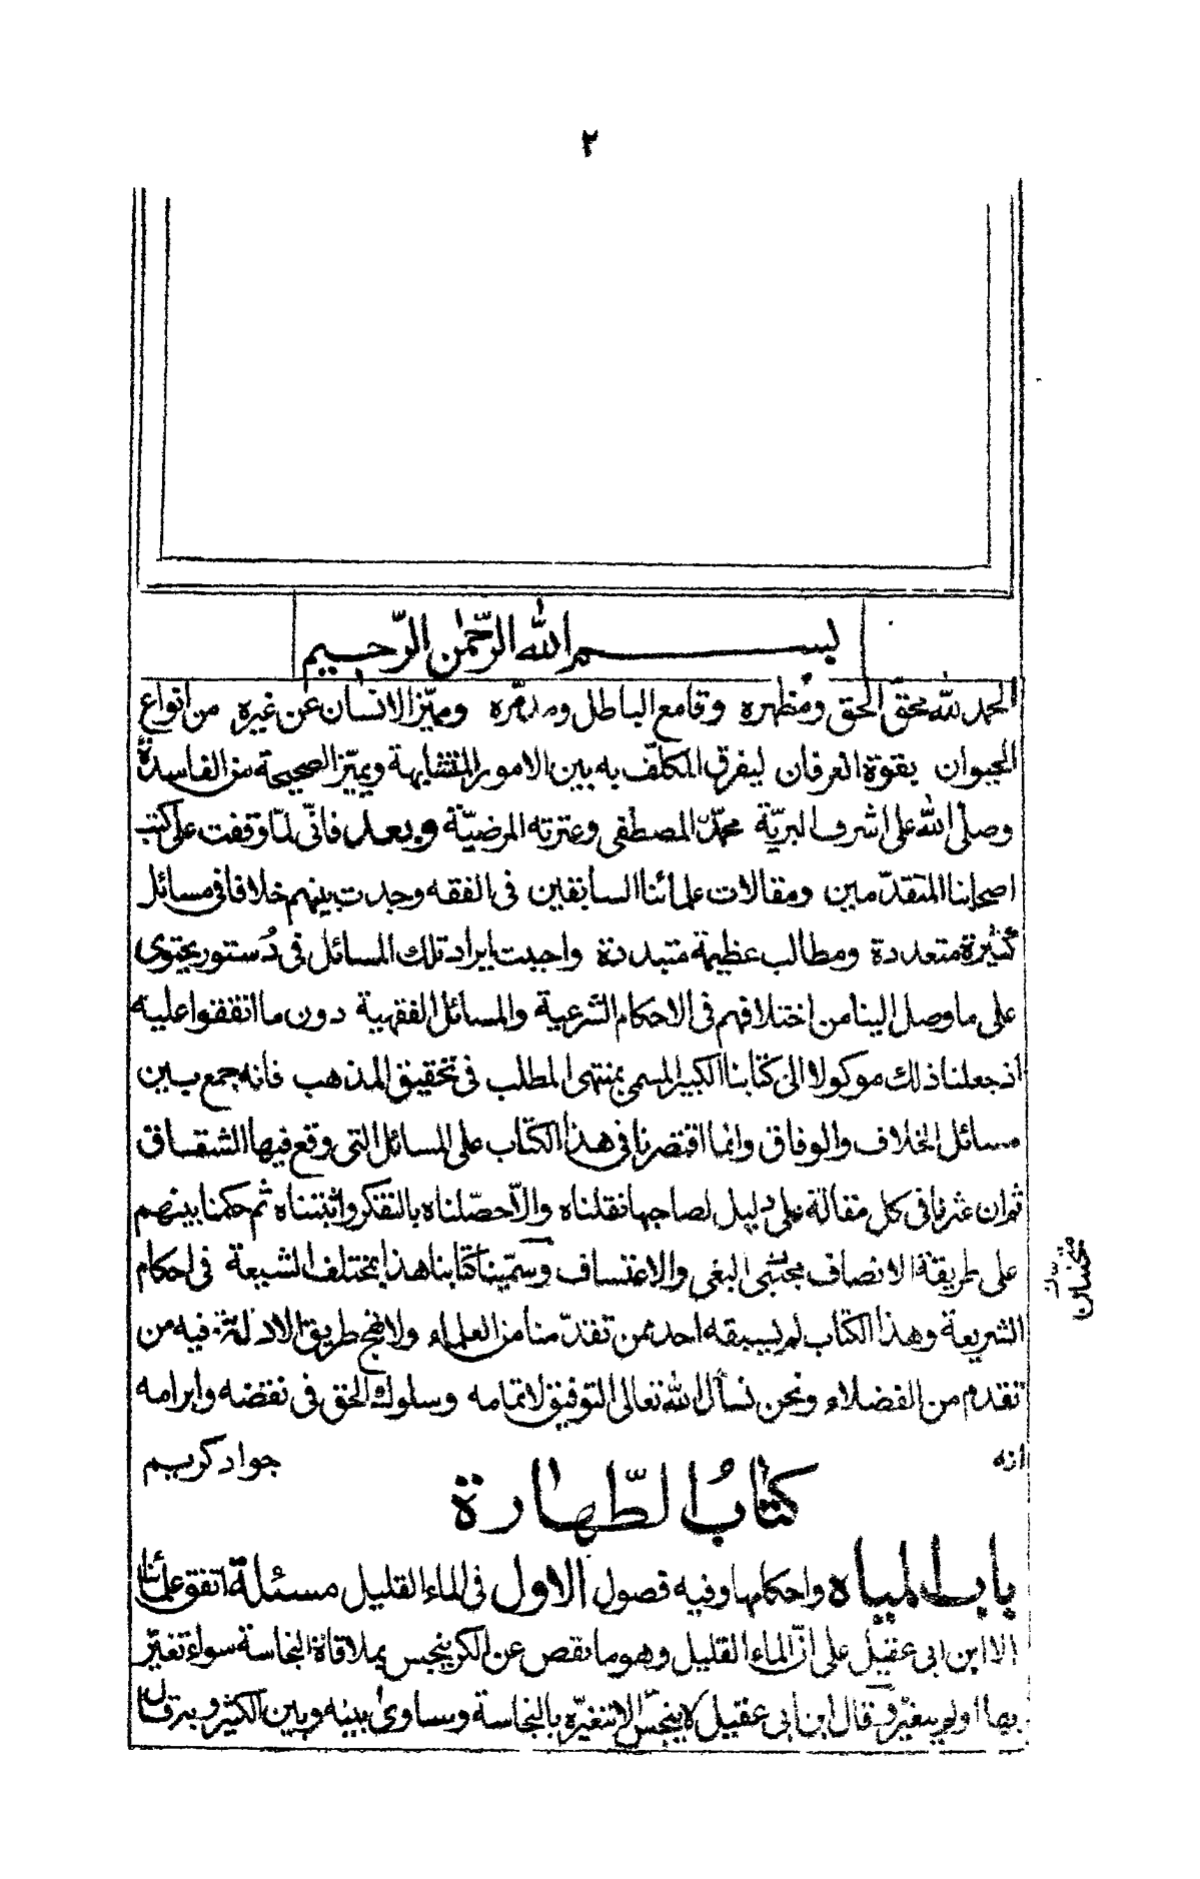 ٢
بسم الله الرّحمٰن الرّحيم
الحمد للّه محقّ الحق ومظهره وقامع الباطل ومدمّره ومميّز الانسان عن غيره من انواع
الحيوان بقوة العرفان ليفرق المكلّف به بين الامور المتشابهة ويميّز الصحيحة من الفاسدة
وصلى اللّه على اشرف البريّة محمّد المصطفى وعترته المرضيّة وبعد فانّى لمّا وقفت على كتب
اصحابنا المتقدّمين ومقالات علمائنا السابقين فى الفقه وجدت بينهم خلافا فى مسائل
كثيرة متعددة ومطالب عظيمة متبددة واحببت ايراد تلك المسائل فى دُستور يحتوى
على ما وصل الينا من اختلافهم فى الاحكام الشرعية والمسائل الفقهية دون ما اتفقوا عليه
اذ جعلنا ذلك موكولا الى كتابنا الكبير المسمى بمنتهى المطلب فى تحقيق المذهب فانه جمع بين
مسائل الخلاف والوفاق وانما اقتصرنا فى هذا الكتاب على المسائل التى وقع فيها الشقساق
ثم ان عثرنا فى كل مقالة على دليل لصاحبها نقلناه والّا حصّلناه بالتفكر واثبتناه ثم حكمنا بينهم
على طريقة الانصاف مجتنبى البغى والاعتساف وسمّينا كتابنا هذا بمختلف الشيعة فى احكام
الشريعة وهذا الكتاب لم يسبقه احد ممن تقدّمنا من العلماء ولا نهج طريق الادلة فيه من
تقدم من الفضلاء ونحن نسأل اللّه تعالى التوفيق لاتمامه وسلوك الحق فى نقضه وابرامه
انه جواد كريم
كتابُ الطّهارة
باب المياه واحكامها وفيه فصول الاول فى الماء القليل مسئلة اتفق علمائنا
الا ابن ابى عقيل على انّ الماء القليل وهو ما نقص عن الكر ينجس بملاقاة النجاسة سواء تغيّر
بها او لم يتغيّر وقال ابن ابى عقيل لا ينجس الا بتغيّره بالنجاسة وساوى بينه وبين الكثير وبه قال